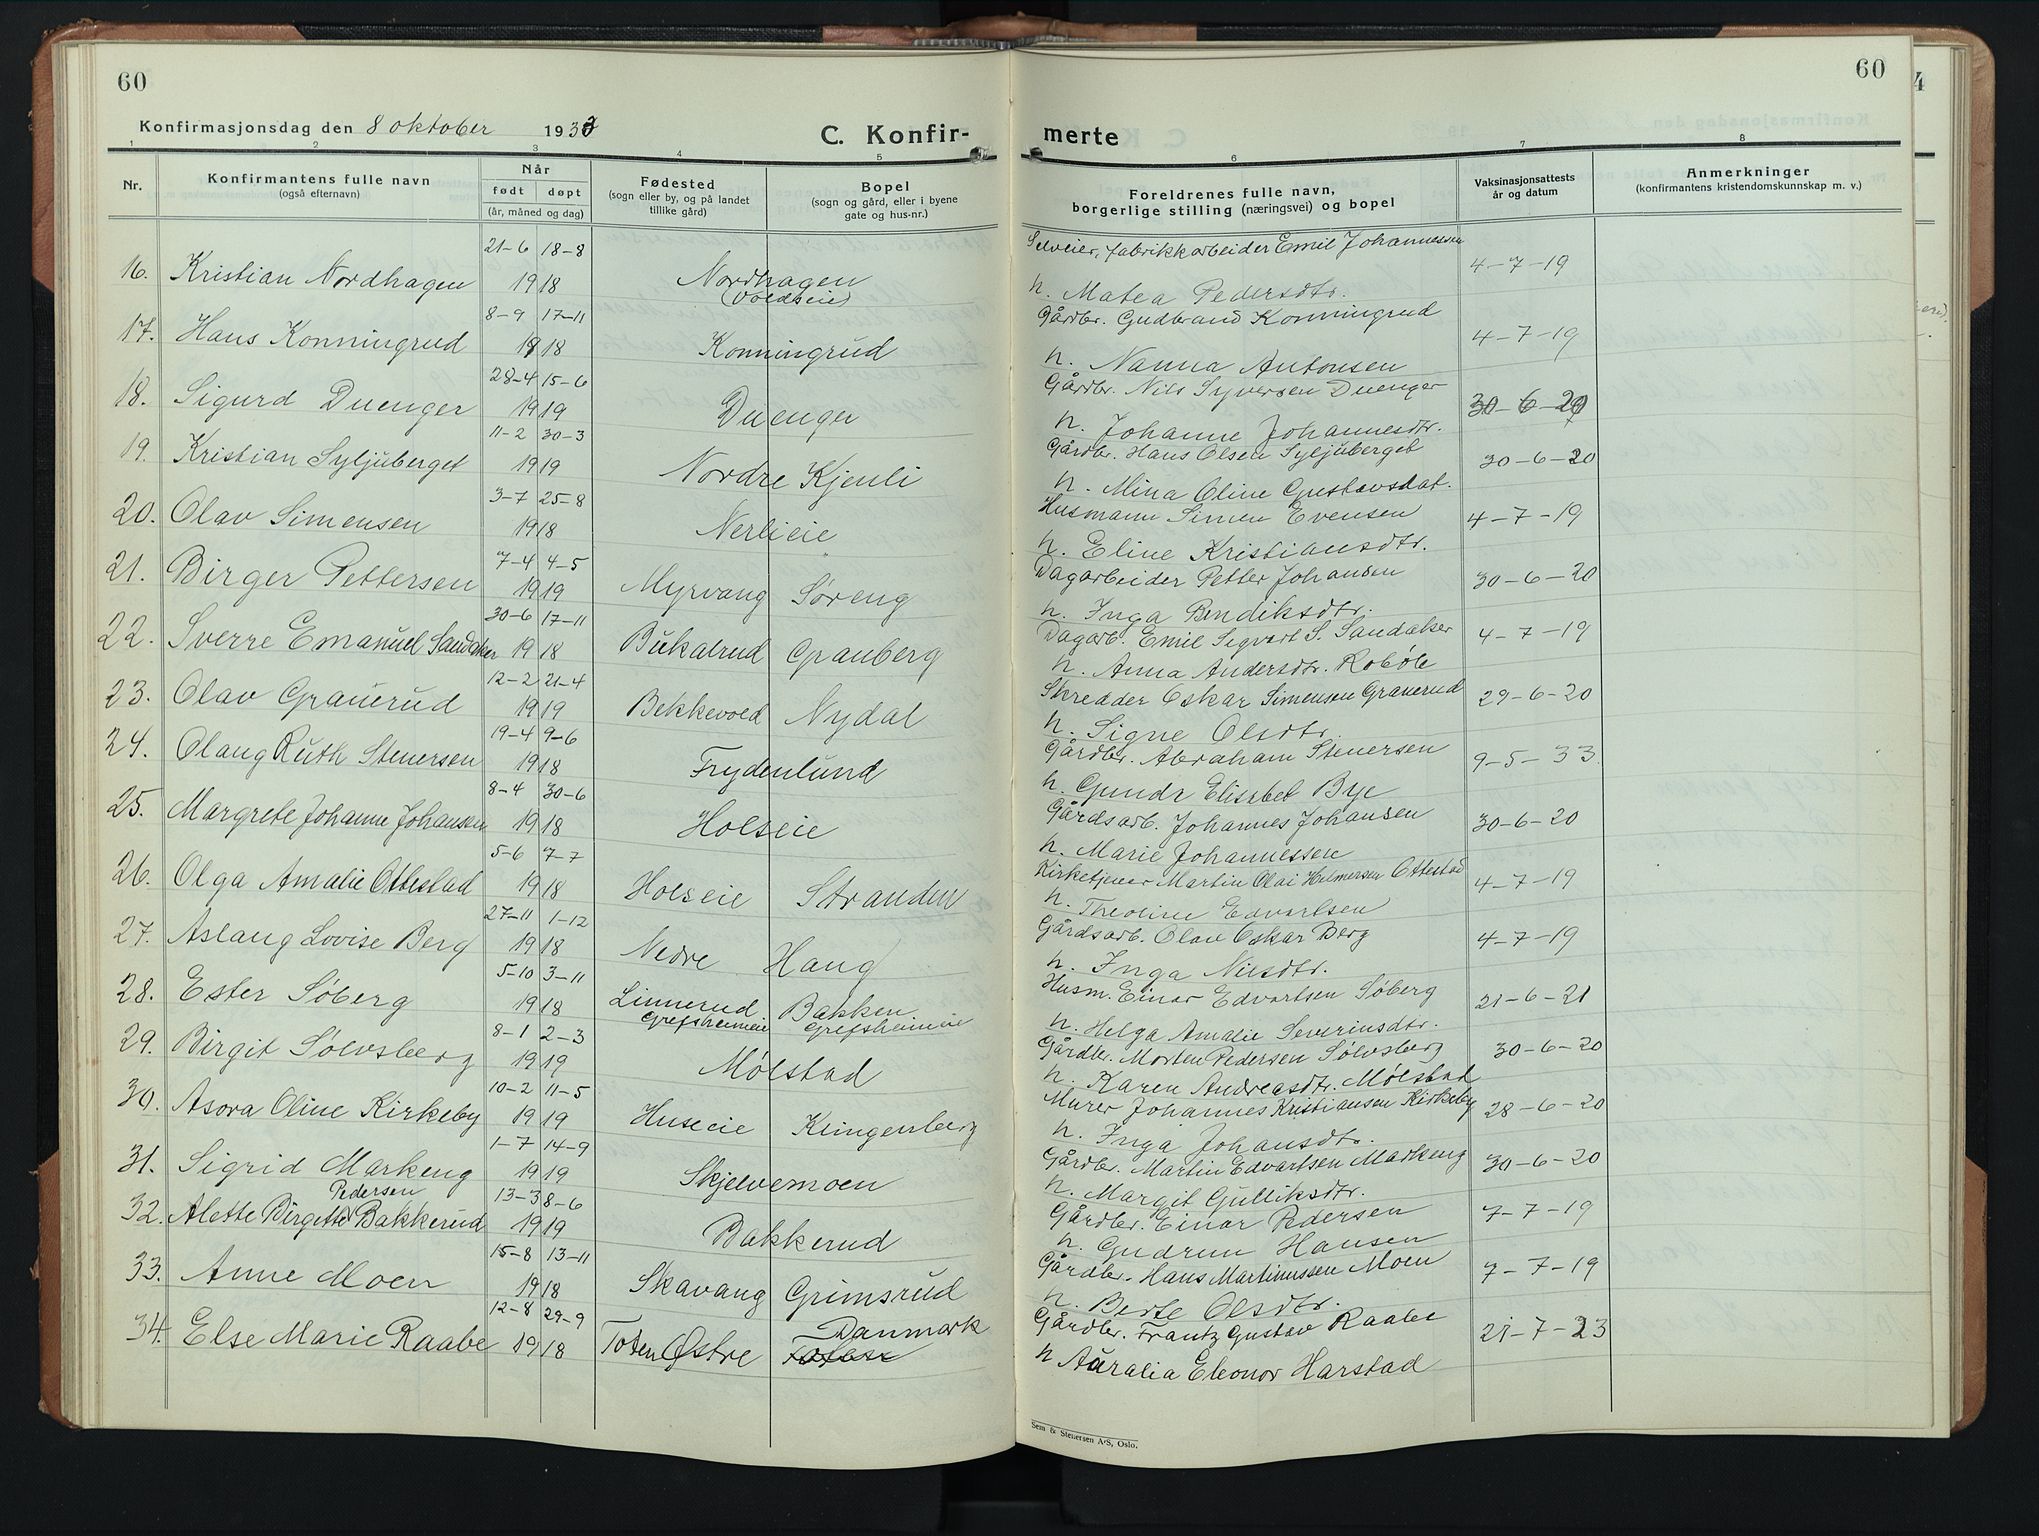 60
Konfirmasjonsdag den 8 oktober 1933
C. Konfir-
1 2 3 4 5
Nr.
Konfirmantens fulle navn
(også efternavn)
Når
født døpt
(år, måned og dag)
Fødested
(sogn eller by, og på landet
tillike gård)
Bopel
(sogn og gård, eller i byene
gate og hus-nr.)
21-6 18-8
16. Kristian Nordhagen 1918 Nordhagen
(Voldseie)
8-9 17-11
17. Hans Konningrud 1918 Konningrud
28-4 15-6
18. Sigurd Duenger 1919 Duenger
11-2 30-3
19. Kristian Syljuberget 1919 Nordre Kjenli
3-7 25-8
20. Olav Simensen 1918 Nerlieie "
7-4 4-5
21. Birger Pettersen 1919 Myrvang Søreng
30-6 17-11
22. Sverre Emanuel Sandaker 1918 Bukalrud Granberg
12-2 21-4
23. Olav Grauerud 1919 Bekkevold Nydal
19-4 9-6
24. Olaug Ruth Stenersen 1918 Frydenlund
8-4 30-6
25. Margrete Johanne Johansen 1918 Holseie
5-6 7-7
26. Olga Amalie Ottestad 1918 Holseie Stranden
27-11 1-12
27. Aslaug Lovise Berg 1918 Nedre Haug
5-10 3-11
28. Ester Søberg 1918 Linnerud Bakken
Grefsheimeie Grefsheimeie
8-1 2-3
29. Birgit Sølvsberg 1919 Mølstad
10-2 11-5
30. Asora Oline Kirkeby 1919 Huseie Klingenberg
1-7 14-9
31. Sigrid Markeng 1919 Skjelvemoen
Pedersen 13-3 8-6
32. Alette Birgitte Bakkerud 1919 Bakkerud
15-8 13-11
33. Anne Moen 1918 Skavang Grimsrud
12-8 29-9 Danmark
34. Else Marie Raabe 1918 Toten Østre
60
merte
6 7 8
Foreldrenes fulle navn,
borgerlige stilling (næringsvei) og bopel
Vaksinasjonsattests
år og datum
Anmerkninger
(konfirmantens kristendomskunnskap m. v.)
Selveier, fabrikkarbeider Emil Johannessen
4-7-19
h. Matea Pedersdtr.
Gårdbr. Gudbrand Konningrud
4-7-19
h. Nanna Antonsen
Gårdbr. Nils Syversen Duenger
30-6-20
h. Johanne Johannesdtr.
Gårdbr. Hans Olsen Syljuberget
30-6-20
h. Mina Oline Gustavsdat.
Husmann Simen Evensen
4-7-19
h. Eline Kristiansdtr.
Dagarbeider Petter Johansen
30-6-20
h. Inga Bendiksdtr.
Dagarb. Emil Sigvart S. Sandaker
4-7-19
h. Anna Andersdtr. Robøle
Skredder Oskar Simensen Grauerud
29-6-20
h. Signe Olsdtr.
Gårdbr. Abraham Stenersen
9-5-33
h. Gunda Elisabet Bye
Gårdsarb. Johannes Johansen
30-6-20
h. Marie Johannessen
Kirketjener Martin Olai Helmersen Ottestad
4-7-19
h. Theoline Edvartsen
Gårdsarb. Olav Oskar Berg
4-7-19
h. Inga Nilsdtr.
Husm. Einar Edvartsen Søberg
21-6-21
h. Helga Amalie Severinsdtr.
Gårdbr. Morten Pedersen Sølvsberg
30-6-20
h. Karen Andreasdtr. Mølstad
Murer Johannes Kristiansen Kirkeby
28-6-20
h. Inga Johansdtr.
Gårdbr. Martin Edvartsen Markeng
30-6-20
h. Margit Gulliksdtr.
Gårdbr. Einar Pedersen
7-7-19
h. Gudrun Hansen
Gårdbr. Hans Martinussen Moen
7-7-19
h. Berte Olsdtr.
Gårdbr. Frantz Gustav Raabe
21-7-23
h Auralia Eleonor Harstad
Sem & Stenersen A/S, Oslo.